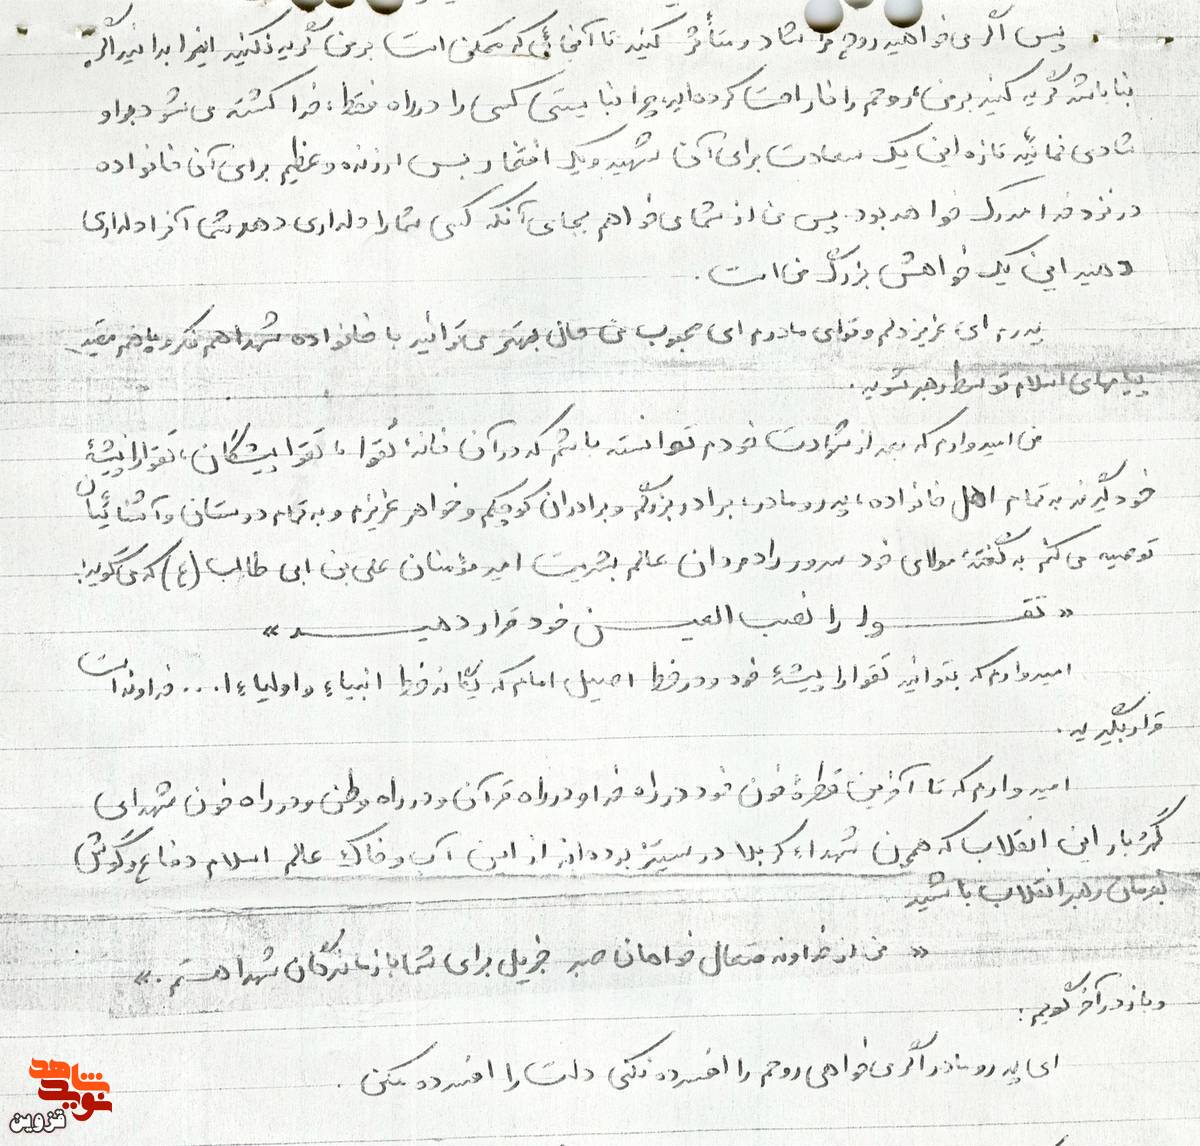 پس اگر می خواهید روح مرا شاد و متأثر کنید تا آنجائی که ممکن است بر من گریه نکنید اینرا بدانید اگر
بنا باشد گریه کنید بر من، روحم را ناراحت کرده اید چرا نبایستی کسی را در راه فقط، خدا کشته می شود براو
شادی نمائید تازه این یک سعادت برای آن شهید و یک افتخار بس ارزنده و عظیم برای آن خانواده
در نزد خدا مدرک خواهد بود. پس من از شما می خواهم بجای آنکه کسی شما را دلداری دهد شما آنرا دلداری
دهید این یک خواهش بزرگ من است.
پدرم ای عزیز دلم و توای مادرم ای محبوب من حال بهتر می توانید با خانواده شهدا هم فکر و با هم مفید
پیامهای اسلام توسط رهبر شوید.
من امیدوارم که بعد از شهادت خودم توانسته باشم که در آن خانهٔ تقوا، تقوا پیشگان، تقوا را پیشهٔ
خود گیرند به تمام اهل خانواده، پدر و مادر، برادر بزرگم و برادران کوچکم و خواهر عزیزم و به تمام دوستان و آشنائیان
توصیه می کنم به گفتهٔ مولای خود سرور رادمردان عالم بشریت امیر مؤمنان علی بن ابی طالب (ع) که می گوید:
« تقـــوا را نصب العیـــن خود قرار دهیـــد »
امیدوارم که بتوانید تقوا را پیشهٔ خود و در خط اصیل امام که یگانه خط انبیاء و اولیاء ا... خداوند است
قرار بگیرید.
امیدوارم که تا آخرین قطرهٔ خون خود در راه خدا و در راه قرآن و در راه وطن و در راه خون شهدای
گهربار این انقلاب که همچون شهداء کربلا در ستیز بوده اند از این آب و خاک عالم اسلام دفاع و گوش
بفرمان رهبر انقلاب باشید
« من از خداوند متعال خواهان صبر جزیل برای شما بازماندگان شهدا هستم. »
و باز در آخر گویم:
ای پدر و مادر اگر می خواهی روحم را افسرده نکنی دلت را افسرده مکن.
شاهد
نوید
قزوین